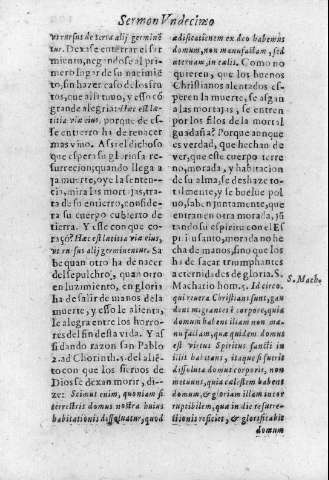 Sermon Vndecimo
vt rursus de terra alij germinē
tur. Dexase enterrar el sar
miento, negandose al pri
mero lugar de su nacimiē
to, sin hazer caso de los fru
tos, que alli tuuo, y esso cō
grande alegria: Hæc est læ-
titia viæ eius, porque de es-
se entierro ha de renacer
mas viuo. Assi el dichoso
que espera su gloriosa re-
surreciõ; quando llega a
la muerte, o ye la senten-
cia, mira las mortajas, tra-
ta de su entierro, conside-
ra su cuerpo cubierto de
tierra. Y esse con que co-
raçõ? Hæc est lætitia viæ eius,
vt rursus alij germinentur. Sa
be quan otro ha de nacer
del sepulchro, quan otro
en luzimiento, en gloria
ha de salir de manos de la
muerte, y esso le alienta,
le alegra entre los horro-
res del fin desta vida. Y as
si dando razon san Pablo
2. ad Chorinth. 5. del aliē-
to con que los sieruos de
Dios se dexan morir, di-
ze: Scimus enim, quoniam si
terrestris domus nostra huius
habitationis dissoluatur, quod
ædificationem ex deo habemus
domum, non manufactam, sed
æternam, in cælis. Como no
quieren, que los buenos
Christianos alentados es-
peren la muerte, se assgan
a las mortajas, se entren
por los filos de la mortal
guadaña? Porque aunque
es verdad, que hechan de
ver, que este cuerpo terre
no, morada, y habitacion
de su alma, se deshaze to-
talmente, y se buelue pol
uo, saben juntamente, que
entran en otra morada, jũ
tando su espiritu con el Es
piritu santo, morada no he
cha de manos, sino que los
ha de sacar triumphantes
a eternidades de gloria. S.
Machario hom. 5. Id circo,
qui reuera Christiani sunt, gau
dent migrantes è corpore, quia
domum habent illam non ma-
nufactam, quæ quidem domus
est virtus Spiritus sancti in
illis habitans, itaque si fuerit
dissoluta domus corporis, non
metuunt, quia cælestem habent
domum, & gloriam illam incor
ruptibilem, quæ in die resurre-
ctionis reficiet, & glorificabit
domum
S. Mach.